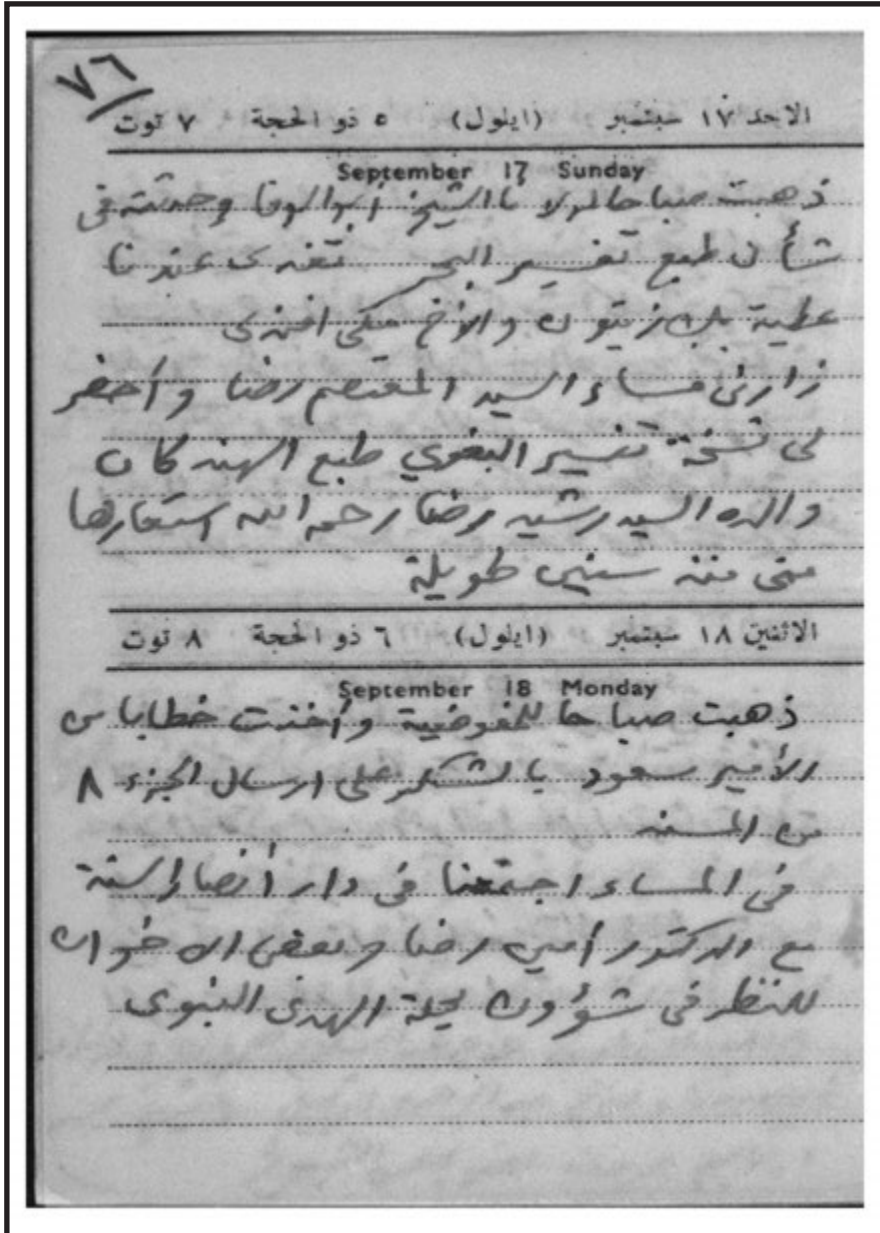 ٧٦
الاحد ١٧ سبتمبر (ايلول) ٥ ذو الحجة ٧ توت
September 17 Sunday
ذهبت صباحا الشيخ أبو الوفا وحدثته فى
شأن طبع تفسير البحر تغدى عندنا
عطية بك زيتون والأخ مكى افندى
زارنى مساء السيد المعتصم رضا وأحضر
لى نسخة تفسير البغوي طبع الهند كان
والده السيد رشيد رضا رحمه الله استعارها
منى منذ سنين طويلة
الاثنين ١٨ سبتمبر (ايلول) ٦ ذو الحجة ٨ توت
September 18 Monday
ذهبت صباحا للمفوضية وأخذت خطابا من
الأمير سعود بالشكر على ارسال الجزء ٨
من المسند
فى المساء اجتمعنا فى دار أنصار السنة
مع الدكتور أمين رضا وبعض الاخوان
للنظر فى شؤون مجلة الهدى النبوى